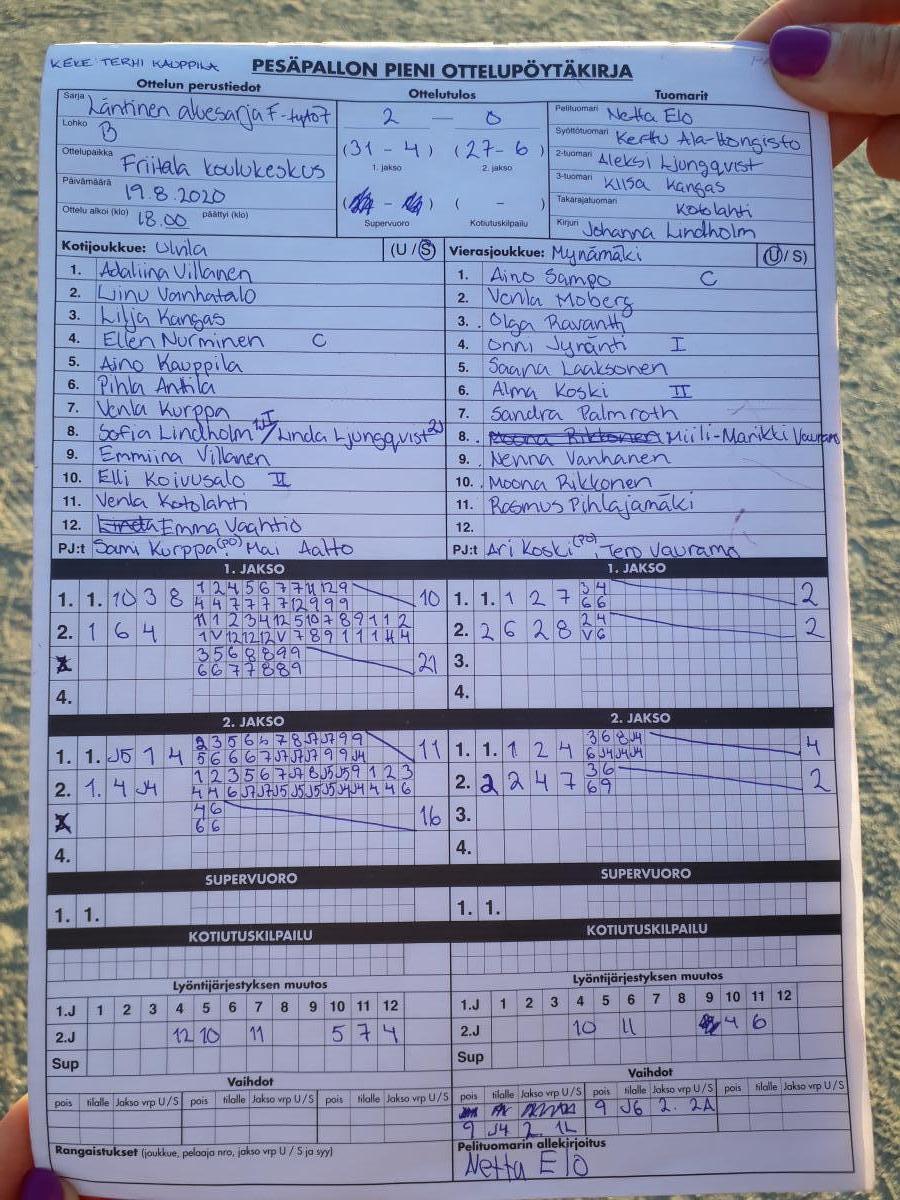 KEKE TERHI KAUPPILA
PESÄPALLON PIENI OTTELUPÖYTÄKIRJA
Ottelun perustiedot
Sarja Läntinen aluesarja F-tytöt
Lohko B
Ottelupaikka Friitala koulukeskus
Päivämäärä 19.8.2020
Ottelu alkoi (klo) 18.00 päättyi (klo)
Ottelutulos
2 – 0
(31 – 4) (27 – 6)
1. jakso 2. jakso
( – ) ( – )
Supervuoro Kotiutuskilpailu
Tuomarit
Pelituomari Netta Elo
Syöttötuomari Kerttu Ala-Hongisto
2-tuomari Aleksi Ljungqvist
3-tuomari Kiisa Kangas
Takarajatuomari Kotolahti
Kirjuri Johanna Lindholm
Kotijoukkue: Ulvila (U / S)
1. Adaliina Villanen
2. Linu Vanhatalo
3. Lilja Kangas
4. Ellen Nurminen C
5. Aino Kauppila
6. Pihla Antila
7. Venla Kurppa
8. Sofia Lindholm 1J I / Linda Ljungqvist 2J
9. Emmiina Villanen
10. Elli Koivusalo II
11. Venla Kotolahti
12. Emma Vaahtio
PJ:t Sami Kurppa (PO) Mai Aalto
Vierasjoukkue: Mynämäki (U / S)
1. Aino Sampo C
2. Venla Moberg
3. Olga Ravantti
4. Onni Jynänti I
5. Saana Laaksonen
6. Alma Koski II
7. Sandra Palmroth
8. Moona Rikkonen Miili-Marikki Vauramo
9. Nenna Vanhanen
10. Moona Rikkonen
11. Rasmus Pihlajamäki
12.
PJ:t Ari Koski (PO), Tero Vauramo
1. JAKSO
1. 1. 10 3 8 1 2 4 5 6 7 7 11 12 9 10
4 4 7 7 7 7 12 9 9 9
2. 1 6 4 11 1 2 3 4 12 5 10 7 8 9 1 1 2
1 V 12 12 12 V 7 8 9 1 1 1 4 4
3 5 6 8 8 9 9 21
6 6 7 7 8 8 9
4.
1. JAKSO
1. 1. 1 2 7 3 4 2
6 6
2. 2 6 2 8 2 4 2
V 6
3.
4.
2. JAKSO
1. 1. J5 1 4 2 3 5 6 6 7 8 J7 J7 9 9 11
5 6 6 6 7 J7 J7 J7 9 9 J4
2. 1. 4 J4 1 2 3 5 6 7 J7 8 J5 J5 9 1 2 3
4 4 6 J7 J7 J5 J5 J5 J5 J4 J4 4 4 6
4 6 16
6 6
4.
2. JAKSO
1. 1. 1 2 4 3 6 8 J4 4
6 J4 J4 J4
2. 2 2 4 7 3 6 2
6 9
3.
4.
SUPERVUORO
1. 1.
SUPERVUORO
1. 1.
KOTIUTUSKILPAILU
KOTIUTUSKILPAILU
Lyöntijärjestyksen muutos
1.J 1 2 3 4 5 6 7 8 9 10 11 12
2.J 12 10 11 5 7 4
Sup
Lyöntijärjestyksen muutos
1.J 1 2 3 4 5 6 7 8 9 10 11 12
2.J 10 11 4 6
Sup
Vaihdot
pois tilalle Jakso vrp U / S pois tilalle Jakso vrp U / S pois tilalle Jakso vrp U / S
Vaihdot
pois tilalle Jakso vrp U / S pois tilalle Jakso vrp U / S pois tilalle Jakso vrp U / S
9 J6 2. 2A
9 J4 2. 1L
Rangaistukset (joukkue, pelaaja nro, jakso vrp U / S ja syy)
Pelituomarin allekirjoitus
Netta Elo